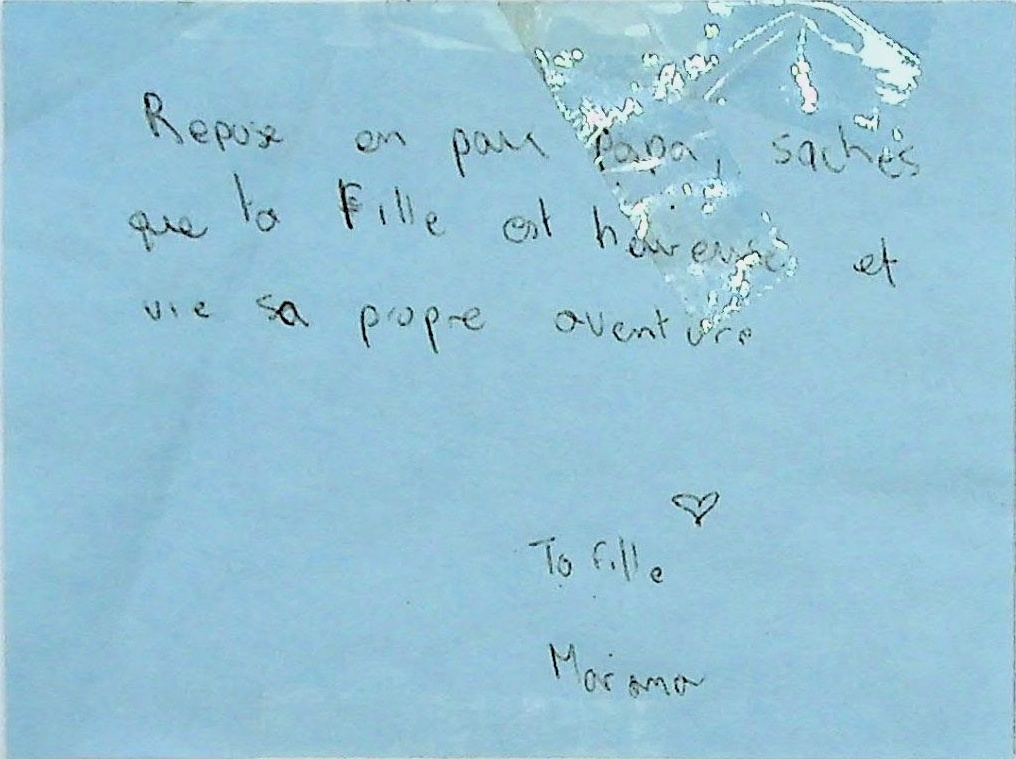 Repose en paix Papa, saches
que ta Fille est heureuse et
vie sa propre aventure
♡
Ta fille
Mariama